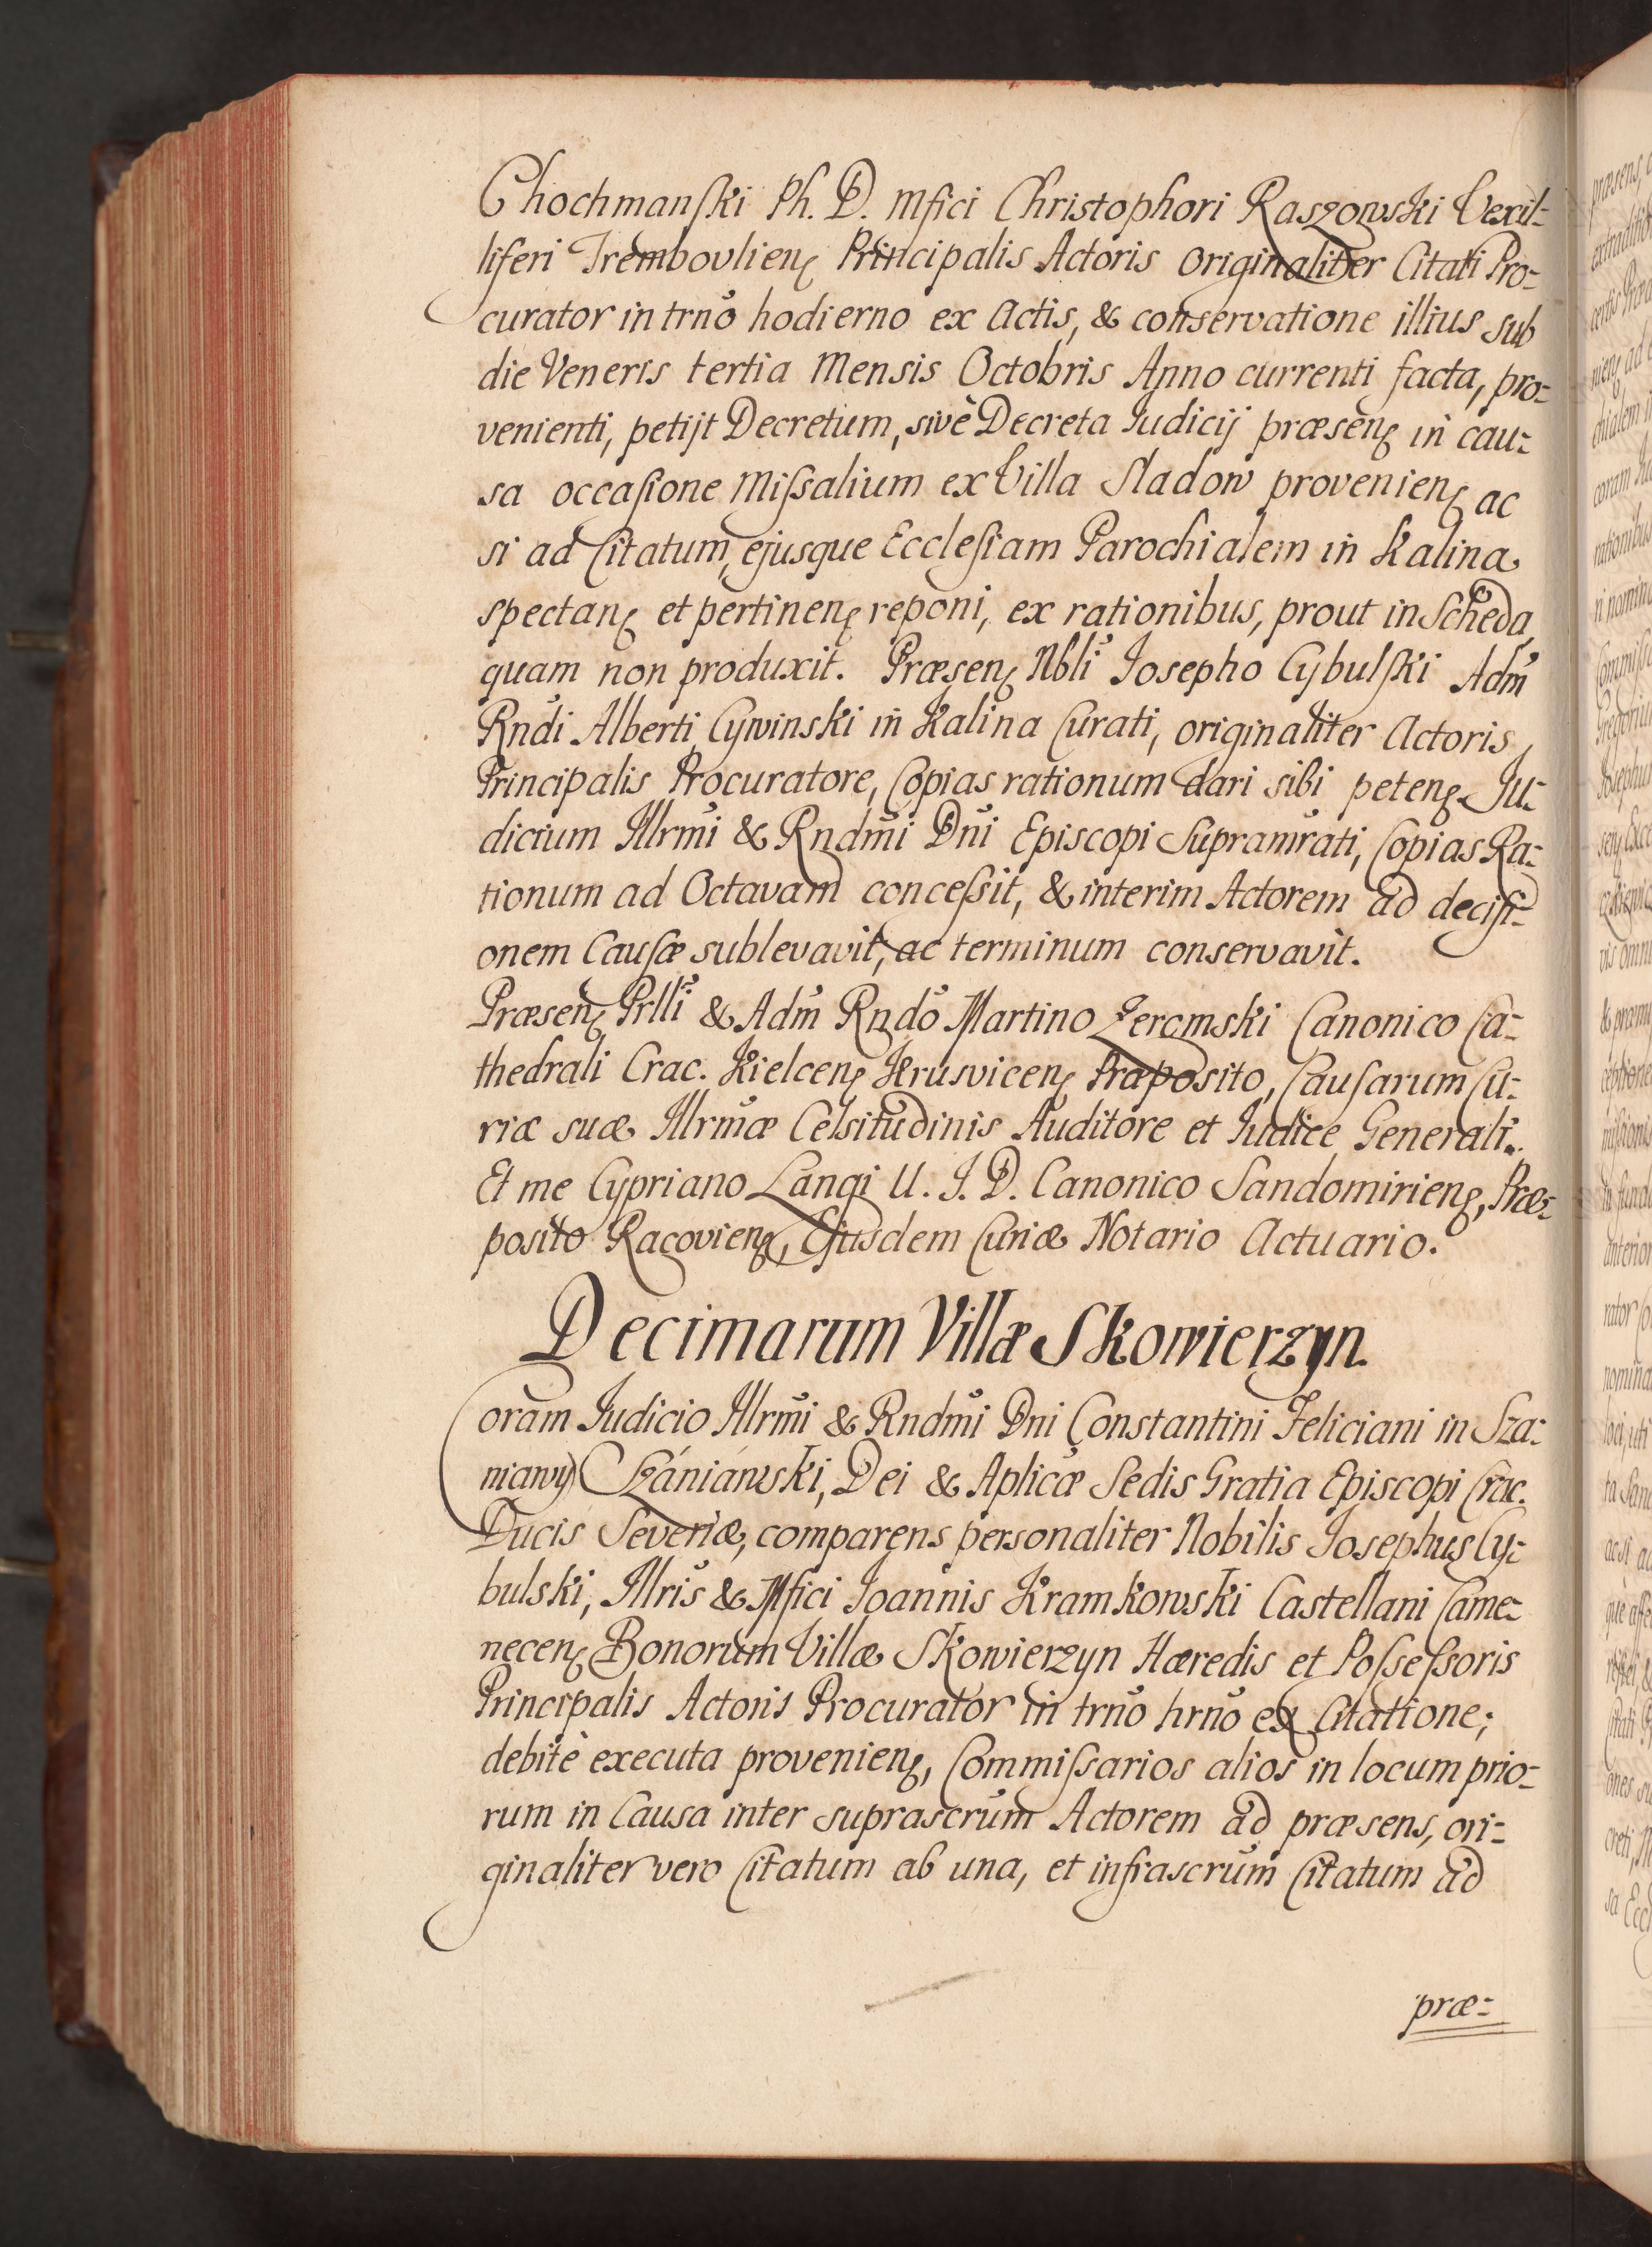 Chochmanſki Ph. D. Mfici Christophori Raszowski Vexil-
liferi Trembovlienʒ Principalis Actoris originaliter Citati Pro-
curator in trno hodierno ex Actis, & conservatione illius sub
die Veneris tertia Mensis Octobris Anno currenti facta, pro-
venienti, petijt Decretum, sivè Decreta Iudicij præsenʒ in cau-
sa occaſione Miſsalium ex Villa Sladow provenienʒ ac
si ad Citatum, ejusque Eccleſiam Parochialem in Kalina
spectanʒ et pertinenʒ reponi, ex rationibus, prout in Scheda,
quam non produxit. Præsenʒ Nbli Iosepho Cybulſki Adm
Rndi Alberti Cywinski in Kalina Curati, originaliter Actoris
Principalis Procuratore, Copias rationum dari sibi petenʒ Iu-
dicium Illrmi & Rndmi Dni Episcopi Supramrati, Copias Ra-
tionum ad Octavam conceſsit, & interim Actorem ad deciſi-
onem Cauſæ sublevavit, ac terminum conservavit.
Præsenʒ Prlli & Adm Rndo Martino Zeromski Canonico Ca-
thedrali Crac. Kielcenʒ Krusvicenʒ Præposito, Cauſarum Cu-
riæ suæ Illrmæ Celsitudinis Auditore et Iudice Generali.
Et me Cypriano Langi U. J. D. Canonico Sandomirienʒ, Præ-
posito Racovienʒ, Ejusdem Curiæ Notario Actuario.
Decimarum Villæ Skowierzyn.
Coram Iudicio Illrmi & Rndmi Dni Constantini Feliciani in Sza-
niawy Szaniawski, Dei & Aplicæ Sedis Gratia Episcopi Crac.
Ducis Severiæ, comparens personaliter Nobilis Iosephus Cy-
bulski, Illris & Mfici Ioannis Kramkowski Castellani Came-
necenʒ Bonorum Villæ Skowierzyn Hæredis et Poſseſsoris
Principalis Actoris Procurator in trno hrno ex Citatione;
debitè executa provenienʒ, Commiſsarios alios in locum prio-
rum in Causa inter suprascrum Actorem ad præsens, ori-
ginaliter vero Citatum ab una, et infrascrum Citatum ad
præ-